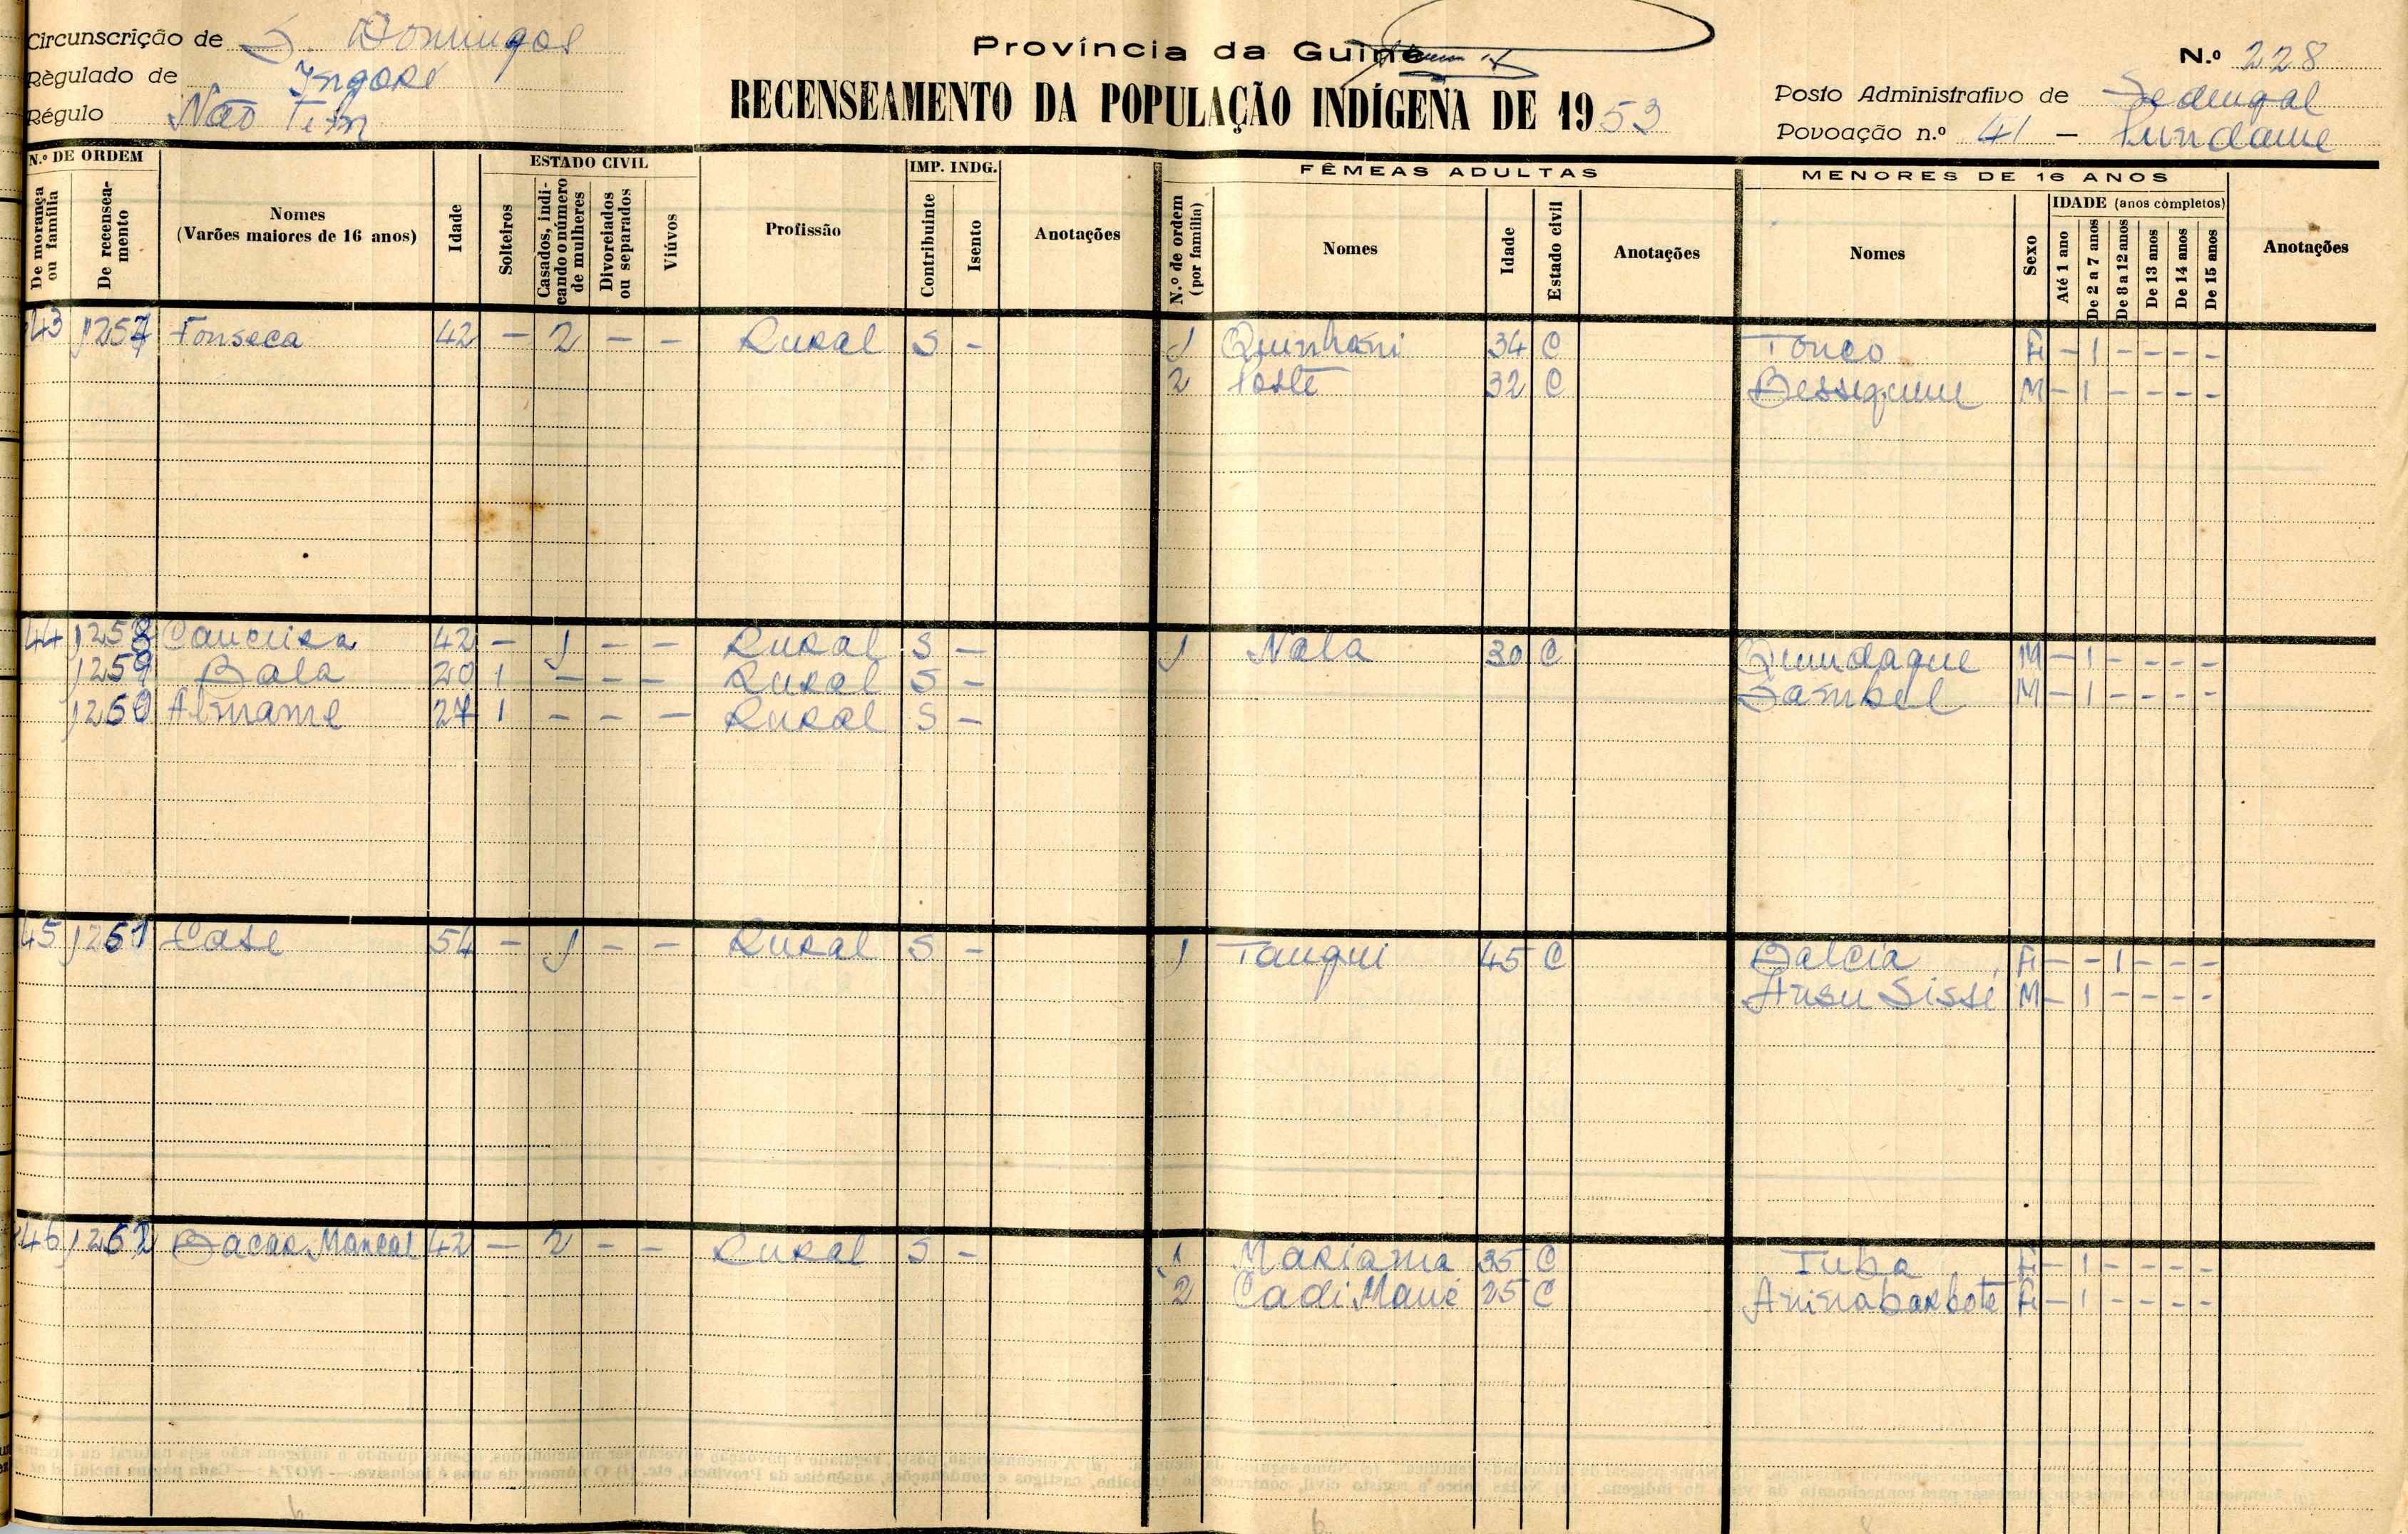 Circunscrição de S. Domingos
Règulado de Ingoré
Régulo Não Tem
Província da Guiné
RECENSEAMENTO DA POPULAÇÃO INDÍGENA DE 1953
N.º 228
Posto Administrativo de Sedengal
Povoação n.º 41 –
N.º DE ORDEM
De morança ou família
De recenseamento
Nomes
(Varões maiores de 16 anos)
Idade
ESTADO CIVIL
Solteiros
Casados, indicando o número de mulheres
Divorciados ou separados
Viúvos
Profissão
IMP. INDG.
Contribuinte
Isento
Anotações
FÊMEAS ADULTAS
N.º de ordem (por família)
Nomes
Idade
Estado civil
Anotações
MENORES DE 16 ANOS
Nomes
Sexo
IDADE (anos completos)
Até 1 ano
De 2 a 7 anos
De 8 a 12 anos
De 13 anos
De 14 anos
De 15 anos
Anotações
43 1257 Fonseca 42 – 2 – – Rural S – 1 Quinhani 34 C Tonco F – 1 – – – –
2 Poste 32 C M – 1 – – – –
44 1258 42 – 1 – – Rural S – 1 Nala 30 C M – 1 – – – –
1259 Bala 20 1 – – – Rural S – Sambel M – 1 – – – –
1260 27 1 – – – Rural S –
45 1261 54 – 1 – – Rural S – 1 Tangui 45 C F – – 1 – – –
Ansu Sissé M – 1 – – – –
46 1262 Bacar Mancal 42 – 2 – – Rural S – 1 Mariama 35 C Tuba F – 1 – – – –
2 Cadi Mané 25 C F – 1 – – – –